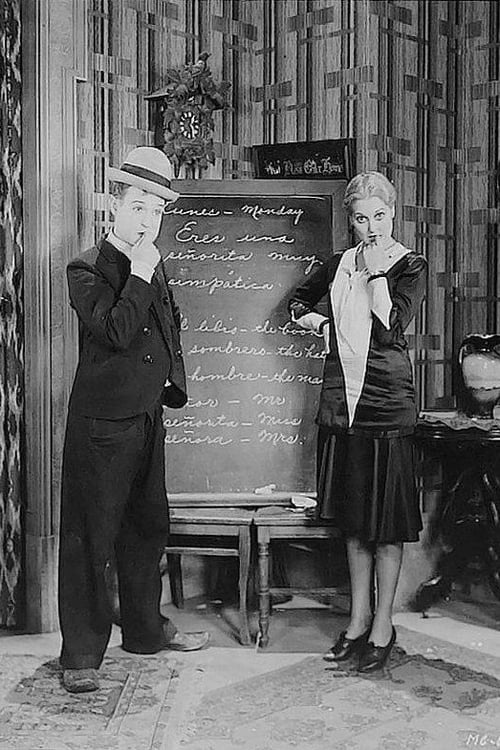 Bless Our Home
Lunes - Monday
Eres una
señorita muy
simpática.
l libro - the book
sombrero - the hat
hombre - the ma
or - Mr
señorita - Miss
señora - Mrs.